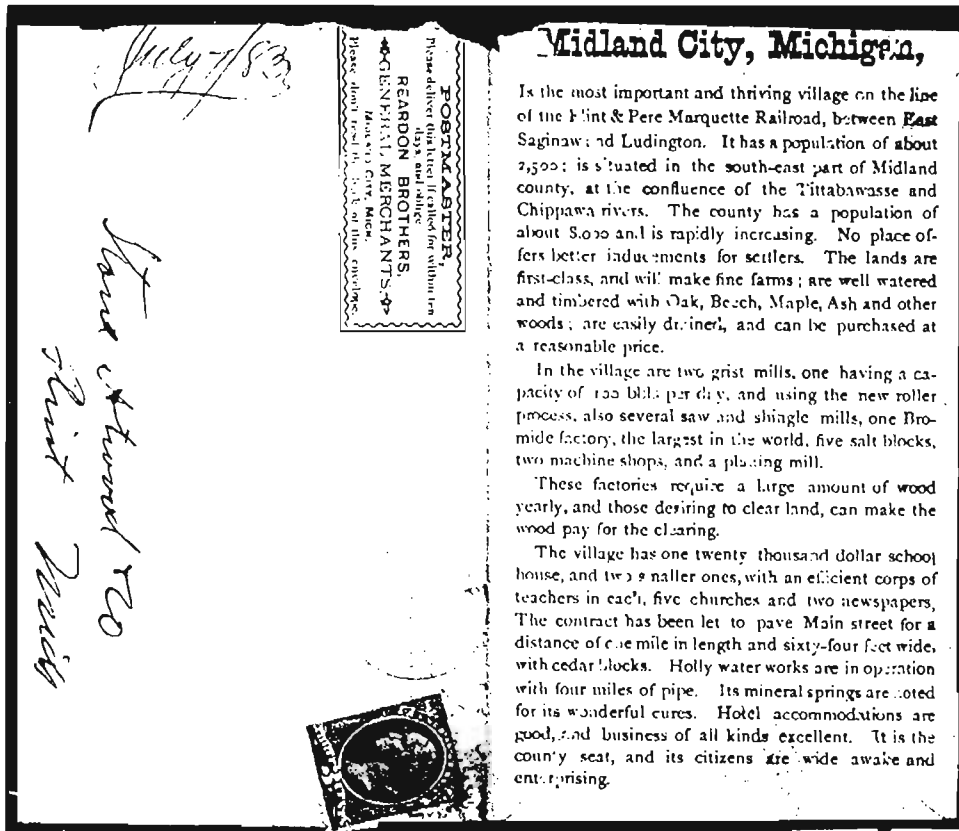 July 7/83
POSTMASTER,
Please deliver this letter if called for within ten
days, and oblige
REARDON BROTHERS,
GENERAL MERCHANTS,
MIDLAND CITY, MICH.
Please don't read the back of this envelope.
Stone Atwood & Co
Flint Mich
Midland City, Michigan,
Is the most important and thriving village on the line
of the Flint & Pere Marquette Railroad, between East
Saginaw and Ludington. It has a population of about
2,500; is situated in the south-east part of Midland
county, at the confluence of the Tittabawasse and
Chippawa rivers. The county has a population of
about 8,000 and is rapidly increasing. No place of-
fers better inducements for settlers. The lands are
first-class, and will make fine farms; are well watered
and timbered with Oak, Beech, Maple, Ash and other
woods; are easily drained, and can be purchased at
a reasonable price.
In the village are two grist mills, one having a ca-
pacity of 100 bbls per day, and using the new roller
process, also several saw and shingle mills, one Bro-
mide factory, the largest in the world, five salt blocks,
two machine shops, and a planing mill.
These factories require a large amount of wood
yearly, and those desiring to clear land, can make the
wood pay for the clearing.
The village has one twenty thousand dollar school
house, and two smaller ones, with an efficient corps of
teachers in each, five churches and two newspapers,
The contract has been let to pave Main street for a
distance of one mile in length and sixty-four feet wide,
with cedar blocks. Holly water works are in operation
with four miles of pipe. Its mineral springs are noted
for its wonderful cures. Hotel accommodations are
good, and business of all kinds excellent. It is the
county seat, and its citizens are wide awake and
enterprising.